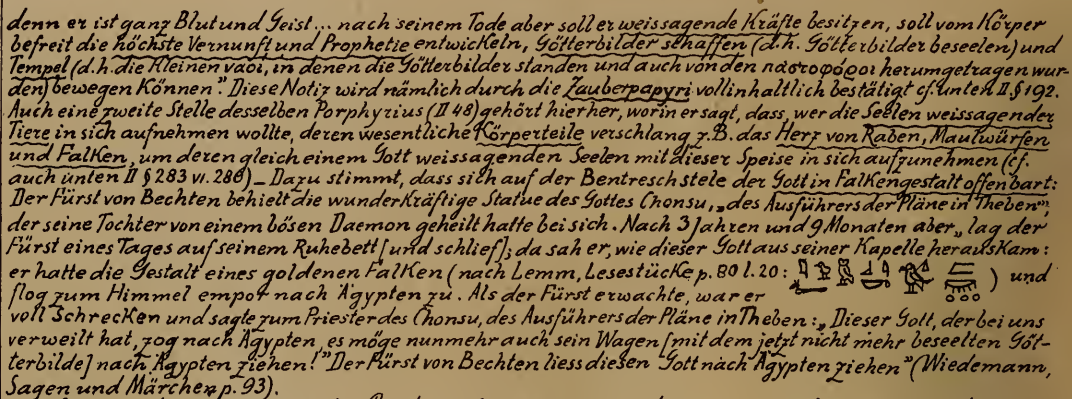 denn er ist ganz Blut und Geist... nach seinem Tode aber soll er weissagende Kräfte besitzen, soll vom Körper
befreit die höchste Vernunft und Prophetie entwickeln, Götterbilder schaffen (d.h. Götterbilder beseelen) und
Tempel (d.h. die kleinen ναοι, in denen die Götterbilder standen und auch von den παστοφόροι herumgetragen wur-
den) bewegen können." Diese Notiz wird nämlich durch die Zauberpapyri vollinhaltlich bestätigt cf. unten II. § 192.
Auch eine zweite Stelle desselben Porphyrius (II 48) gehört hierher, worin er sagt, dass, wer die Seelen weissagender
Tiere in sich aufnehmen wollte, deren wesentliche Körperteile verschlang, z.B. das Herz von Raben, Maulwürfen
und Falken, um deren gleich einem Gott weissagenden Seelen mit dieser Speise in sich aufzunehmen (cf.
auch unten II § 283 u. 286) _ Dazu stimmt, dass sich auf der Bentreschstele der Gott in Falkengestalt offenbart:
Der Fürst von Bechten behielt die wunderkräftige Statue des Gottes Chonsu, „des Ausführers der Pläne in Theben",
der seine Tochter von einem bösen Daemon geheilt hatte bei sich. Nach 3 Jahren und 9 Monaten aber „lag der
Fürst eines Tages auf seinem Ruhebett [und schlief]; da sah er, wie dieser Gott aus seiner Kapelle herauskam:
er hatte die Gestalt eines goldenen Falken (nach Lemm, Lesestücke p. 80 l. 20: ) und
flog zum Himmel empor nach Ägypten zu. Als der Fürst erwachte, war er
voll Schrecken und sagte zum Priester des Chonsu, des Ausführers der Pläne in Theben: „Dieser Gott, der bei uns
verweilt hat, zog nach Ägypten, es möge nunmehr auch sein Wagen [mit dem jetzt nicht mehr beseelten Göt-
terbilde] nach Ägypten ziehen!" Der Fürst von Bechten liess diesen Gott nach Ägypten ziehen" (Wiedemann,
Sagen und Märchen p. 93).